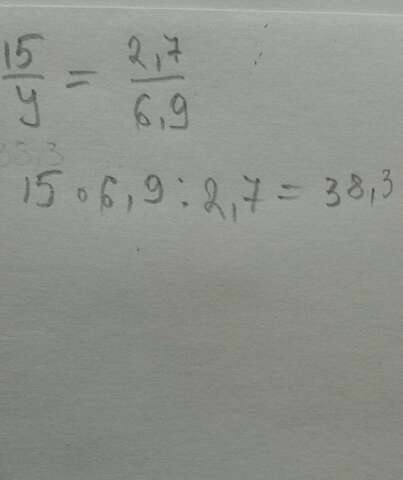 15/y = 2,7/6,9
15 • 6,9 : 2,7 = 38,3